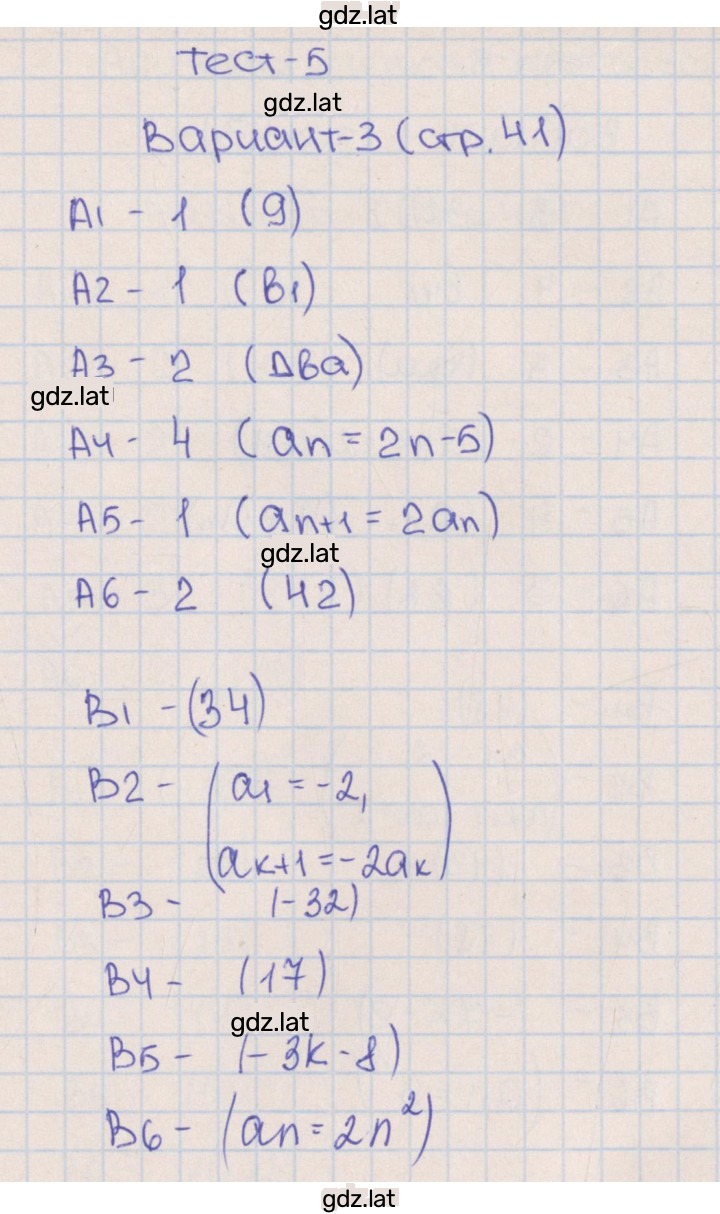 gdz.lat
Тест-5
gdz.lat
Вариант-3 (стр. 41)
А1 - 1 (9)
А2 - 1 (В1)
А3 - 2 (Два)
gdz.lat
А4 - 4 (an = 2n-5)
А5 - 1 (an+1 = 2an)
gdz.lat
А6 - 2 (42)
В1 - (34)
В2 - (a1 = -2,
aк+1 = -2aк)
В3 - (-32)
В4 - (17)
gdz.lat
В5 - (-3к-8)
В6 - (an = 2n²)
gdz.lat